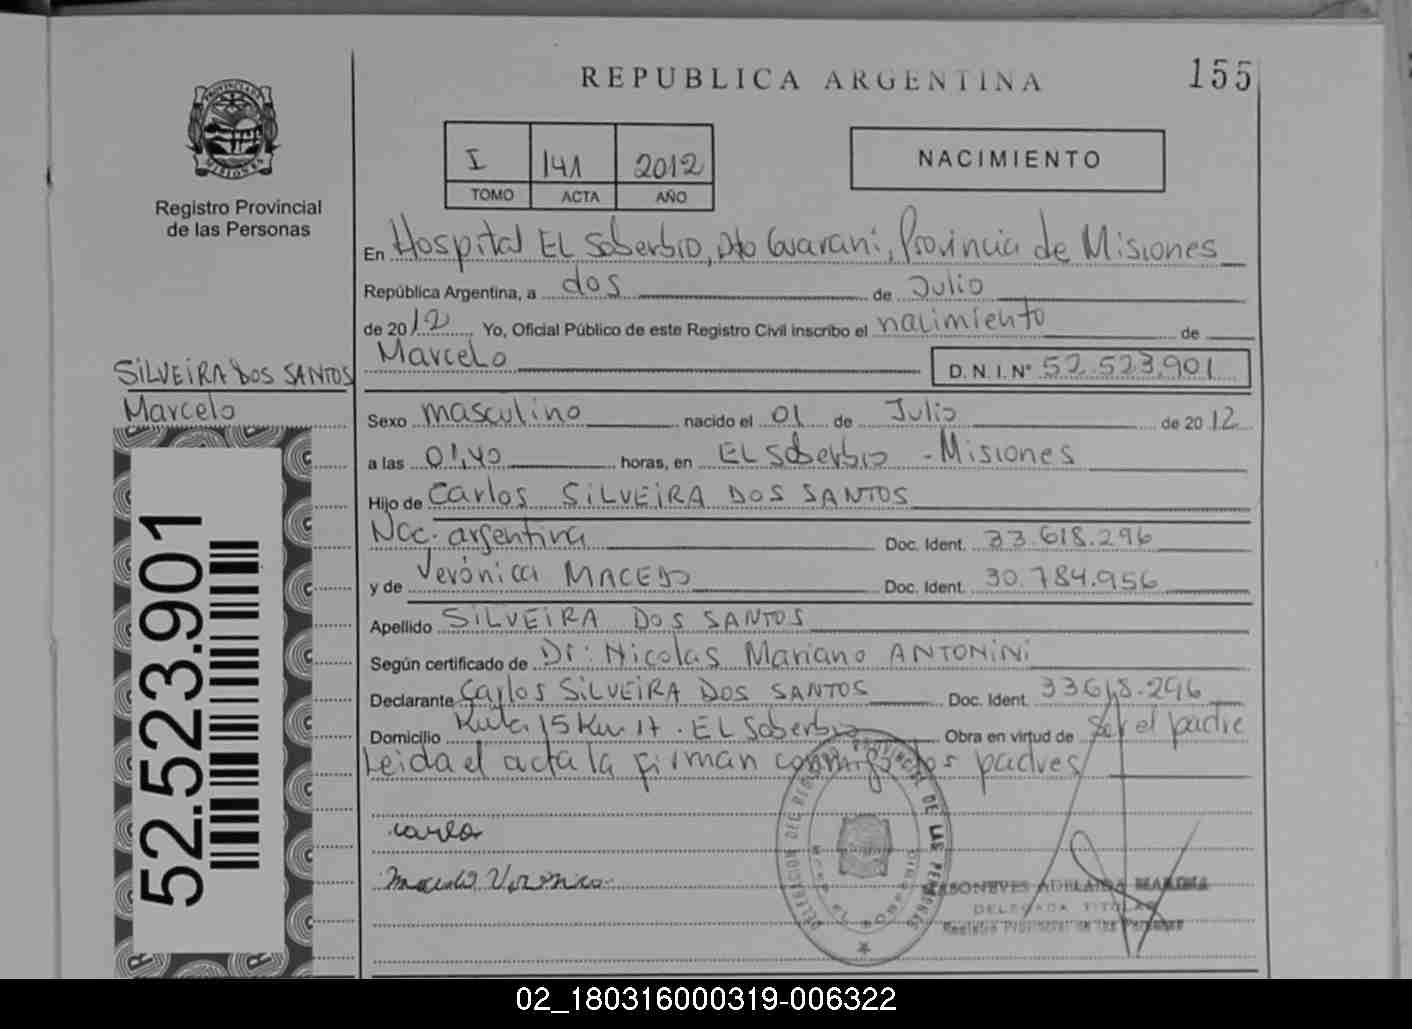 REPUBLICA ARGENTINA
155
I 141 2012
TOMO ACTA AÑO
NACIMIENTO
PROVINCIA DE MISIONES
Registro Provincial
de las Personas
En Hospital EL Soberbio, Dto Guaraní, Provincia de Misiones
República Argentina, a dos de Julio
de 2012 Yo, Oficial Público de este Registro Civil inscribo el nacimiento de
Marcelo D.N.I.Nº 52.523.901
SILVEIRA DOS SANTOS
Marcelo
Sexo masculino nacido el 01 de Julio de 2012
a las 01,40 horas, en EL Soberbio - Misiones
Hijo de Carlos SILVEIRA DOS SANTOS
Nac. argentina Doc. Ident. 33.618.296
y de Verónica MACEDO Doc. Ident. 30.784.956
Apellido SILVEIRA DOS SANTOS
Según certificado de Dr: Nicolas Mariano ANTONINI
Declarante Carlos SILVEIRA DOS SANTOS Doc. Ident. 33618.296
Domicilio Ruta 15 Km 17. EL Soberbio Obra en virtud de ser el padre
Leida el acta la firman conmigo los padres
52.523.901
carlo
Macedo Veronica
DELEGACION DEL REGISTRO PROVINCIAL DE LAS PERSONAS
EL SOBERBIO
ADELAIDA MARINA
DELEGADA TITULAR
Registro Provincial de las Personas
02_180316000319-006322